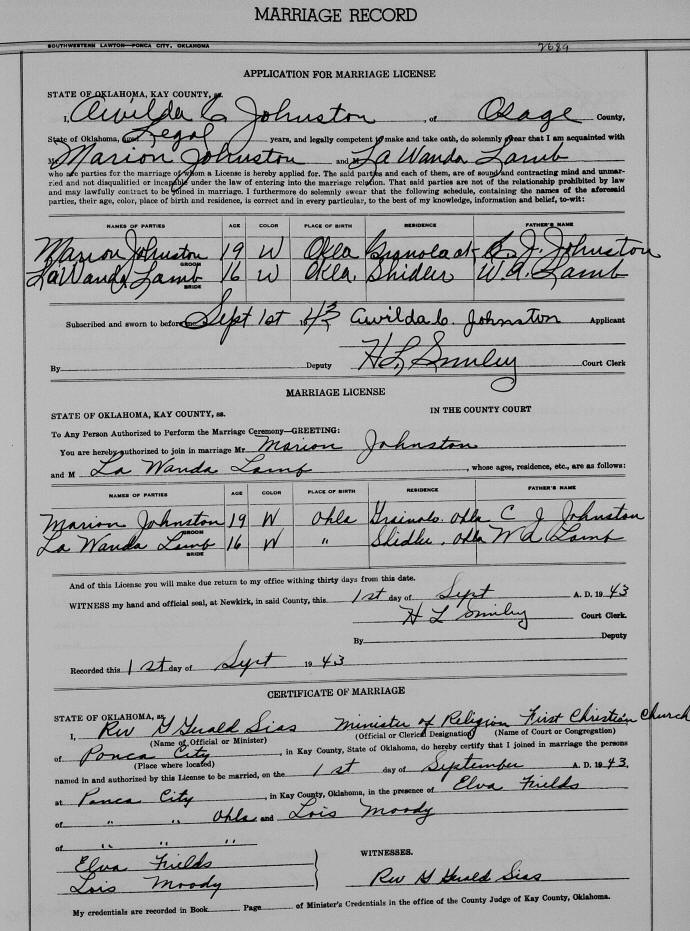 MARRIAGE RECORD
SOUTHWESTERN LAWTON—PONCA CITY, OKLAHOMA 2689
APPLICATION FOR MARRIAGE LICENSE
STATE OF OKLAHOMA, KAY COUNTY, ss.
I, Awilda C Johnston, of Osage County,
State of Oklahoma, aged Legal years, and legally competent to make and take oath, do solemnly swear that I am acquainted with
M Marion Johnston and M La Wanda Lamb
who are parties for the marriage of whom a License is hereby applied for. The said parties and each of them, are of sound and contracting mind and unmar-
ried and not disqualified or incapable under the law of entering into the marriage relation. That said parties are not of the relationship prohibited by law
and may lawfully contract to be joined in marriage. I furthermore do solemnly swear that the following schedule, containing the names of the aforesaid
parties, their age, color, place of birth and residence, is correct and in every particular, to the best of my knowledge, information and belief, to-wit:
NAMES OF PARTIES AGE COLOR PLACE OF BIRTH RESIDENCE FATHER'S NAME
Marion Johnston GROOM 19 W Okla C. J. Johnston
La Wanda Lamb BRIDE 16 W Okla. Shidler W. A. Lamb
Subscribed and sworn to before me Sept 1st 1943 Awilda C. Johnston Applicant
By Deputy H L Smiley Court Clerk
MARRIAGE LICENSE
STATE OF OKLAHOMA, KAY COUNTY, ss. IN THE COUNTY COURT
To Any Person Authorized to Perform the Marriage Ceremony—GREETING:
You are hereby authorized to join in marriage Mr Marion Johnston
and M La Wanda Lamb, whose ages, residence, etc., are as follows:
NAMES OF PARTIES AGE COLOR PLACE OF BIRTH RESIDENCE FATHER'S NAME
Marion Johnston GROOM 19 W Okla Grainola. Okla C J Johnston
La Wanda Lamb BRIDE 16 W " Shidler, Okla W A Lamb
And of this License you will make due return to my office withing thirty days from this date.
WITNESS my hand and official seal, at Newkirk, in said County, this 1st day of Sept A. D. 1943
H L Smiley Court Clerk.
By Deputy
Recorded this 1st day of Sept 1943
CERTIFICATE OF MARRIAGE
STATE OF OKLAHOMA, ss.
I, Rev G Gerald Sias Minister of Religion First Christian Church
(Name of Official or Minister) (Official or Clerical Designation) (Name of Court or Congregation)
of Ponca City, in Kay County, State of Oklahoma, do hereby certify that I joined in marriage the persons
(Place where located)
named in and authorized by this License to be married, on the 1st day of September A. D. 1943.
at Ponca City, in Kay County, Oklahoma, in the presence of Elva Fields
of " " Okla and Lois Moody
of " " "
Elva Fields WITNESSES.
Lois Moody Rev G Gerald Sias
My credentials are recorded in Book Page of Minister's Credentials in the office of the County Judge of Kay County, Oklahoma.